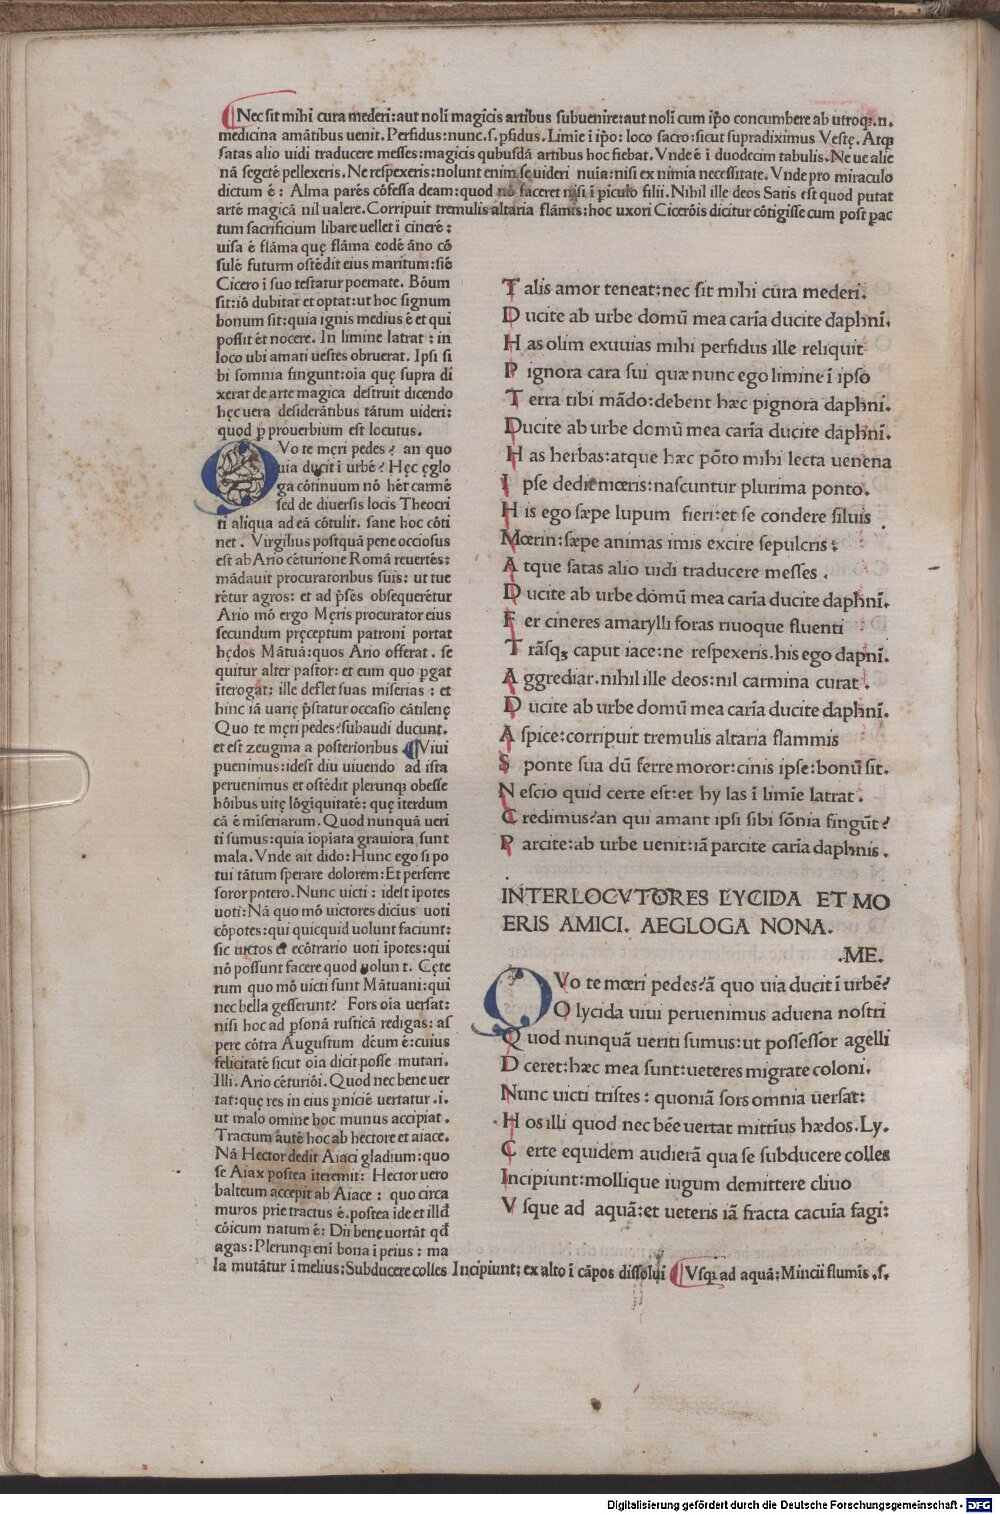 Nec sit mihi cura mederi:aut noli magicis artibus subuenire:aut noli cum ip̃o concumbere ab utroq;.n.
medicina amãtibus uenit. Perfidus:nunc.s.ꝑfidus. Limiẽ ĩ ip̃o: loco sacro:sicut supradiximus Vestę. Atq;
satas alio uidi traducere messes:magicis qubusdã artibus hoc fiebat. Vnde ẽ ĩ duodecim tabulis. Ne ue alie
nã segetẽ pellexeris. Ne respexeris:nolunt enim se uideri nuia:nisi ex nimia necessitate. Vnde pro miraculo
dictum ẽ: Alma parẽs cõfessa deam:quod nõ faceret nisi ĩ ꝑiculo filii. Nihil ille deos Satis est quod putat
artẽ magicã nil ualere. Corripuit tremulis altaria flãmis:hoc uxori Cicerõis dicitur cõtigisse cum post ꝑac
tum sacrificium libare uellet ĩ cinerẽ:
uisa ẽ flãma quę flãma eodẽ ãno cõ
sulẽ futurm ostẽdit eius maritum:siẽ
Cicero ĩ suo testatur poemate. Bõum
sit:iõ dubitat et optat:ut hoc signum
bonum sit:quia ignis medius ẽ et qui
possit et nocere. In limine latrat: in
loco ubi amati uestes obruerat. Ipsi si
bi somnia fingunt:oĩa quę supra di
xerat de arte magica destruit dicendo
hęc uera desiderãtibus tãtum uideri:
quod ꝑ prouerbium est locutus.
QVo te męri pedes? an quo
uia ducit ĩ urbẽ? Hęc ęglo
ga cõtinuum nõ hẽt carmẽ
sed de diuersis locis Theocri
ti aliqua ad eã cõtulit. sane hoc cõti
net. Virgilius postquã pene occiosus
est ab Ario cẽturione Romã reuertẽs:
mãdauit procuratoribus suis: ut tue
rẽtur agros: et ad p̃sẽs obsequerẽtur
Ario mõ ergo Męris procurator eius
secundum pręceptum patroni portat
hędos Mãtuã:quos Ario offerat. se
quitur alter pastor: et eum quo ꝑgat
ĩterogat: ille deflet suas miserias: et
hinc iã uarię p̃statur occasio cãtilenę
Quo te męri pedes?subaudi ducunt.
et est zeugma a posterioribus. Viui
ꝑuenimus:idest diu uiuendo ad ista
peruenimus et ostẽdit plerunq; obesse
hõibus uitę lõgĩquitatẽ: quę ĩterdum
cã ẽ miseriarum. Quod nunquã ueri
ti sumus:quia ĩopĩata grauiora sunt
mala. Vnde ait dido: Hunc ego si po
tui tãtum sperare dolorem: Et perferre
soror potero. Nunc uicti: idest ĩpotes
uoti: Nã quo mõ uictores dicius uoti
cõpotes: qui quicquid uolunt faciunt:
sic uictos et ecõtrario uoti ĩpotes:qui
nõ possunt facere quod uolunt. Cęte
rum quo mõ uicti sunt Mãtuani:qui
nec bella gesserunt? Fors oĩa uersat:
nisi hoc ad ꝑsonã rusticã redigas: as
pere cõtra Augustum dc̃um ẽ:cuius
felicitatẽ sicut oĩa dicit posse mutari.
Illi. Ario cẽturiõi. Quod nec bene uer
tat:quę res in eius ꝑniciẽ uertatur.i.
ut malo omine hoc munus accipiat.
Tractum autẽ hoc ab hectore et aiace.
Nã Hector dedit Aiaci gladium:quo
se Aiax postea ĩteremit: Hector uero
balteum accepit ab Aiace: quo circa
muros prie tractus ẽ. postea ĩde et illđ
cõicum natum ẽ: Dii bene uortãt qđ
agas: Plerunq; enĩ bona ĩ peius: ma
la mutãtur ĩ melius:Subducere colles Incipiunt: ex alto ĩ cãpos dissolui Vsq; ad aquã:Mincii flumĩs.s.
Talis amor teneat:nec sit mihi cura mederi.
Ducite ab urbe domũ mea carĩa ducite daphnĩ.
Has olim exuuias mihi perfidus ille reliquit
Pignora cara sui quæ nunc ego limine ĩ ipso
Terra tibi mãdo:debent hæc pignora daphni.
Ducite ab urbe domũ mea carĩa ducite daphnĩ.
Has herbas:atque hæc põto mihi lecta uenena
Ipse dedit mœris:nascuntur plurima ponto.
His ego sæpe lupum fieri:et se condere siluis
Mœrin:sæpe animas imis excire sepulcris:
Atque satas alio uidi traducere messes.
Ducite ab urbe domũ mea carĩa ducite daphnĩ.
Fer cineres amarylli foras riuoque fluenti
Trãsq; caput iace:ne respexeris.his ego dapnĩ.
Aggrediar.nihil ille deos:nil carmina curat.
Ducite ab urbe domũ mea carĩa ducite daphnĩ.
Aspice:corripuit tremulis altaria flammis
Sponte sua dũ ferre moror:cinis ipse:bonũ sit.
Nescio quid certe est:et hylas ĩ limĩe latrat.
Credimus?an qui amant ipsi sibi sõnia fingũt?
Parcite:ab urbe uenit:iã parcite carĩa daphnis.
INTERLOCVTORES LYCIDA ET MO
ERIS AMICI. AEGLOGA NONA.
.ME.
QVo te mœri pedes?ã quo uia ducit ĩ urbẽ?
O lycida uiui peruenimus aduena nostri
Quod nunquã ueriti sumus:ut possessor agelli
Dceret:hæc mea sunt:ueteres migrate coloni.
Nunc uicti tristes: quoniã sors omnia uersat:
Hos illi quod nec bẽe uertat mittĩus hædos.Ly.
Certe equidem audierã qua se subducere colles
Incipiunt:mollique iugum demittere cliuo
Vsque ad aquã:et ueteris iã fracta cacuĩa fagi:
Digitalisierung gefördert durch die Deutsche Forschungsgemeinschaft - DFG